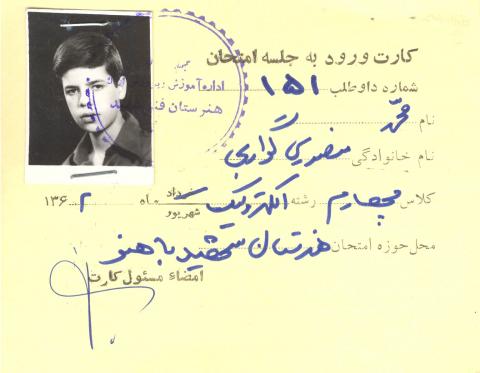 کارت ورود به جلسه امتحان
شماره داوطلب ۱۵۱
نام محمد
نام خانوادگی منصوری گواری
کلاس چهارم رشته الکترونیک خرداد شهریور ماه ۱۳۶۲
محل حوزه امتحان هنرستان شهید باهنر
امضاء مسئول کارت
اداره آموزش
هنرستان فنی